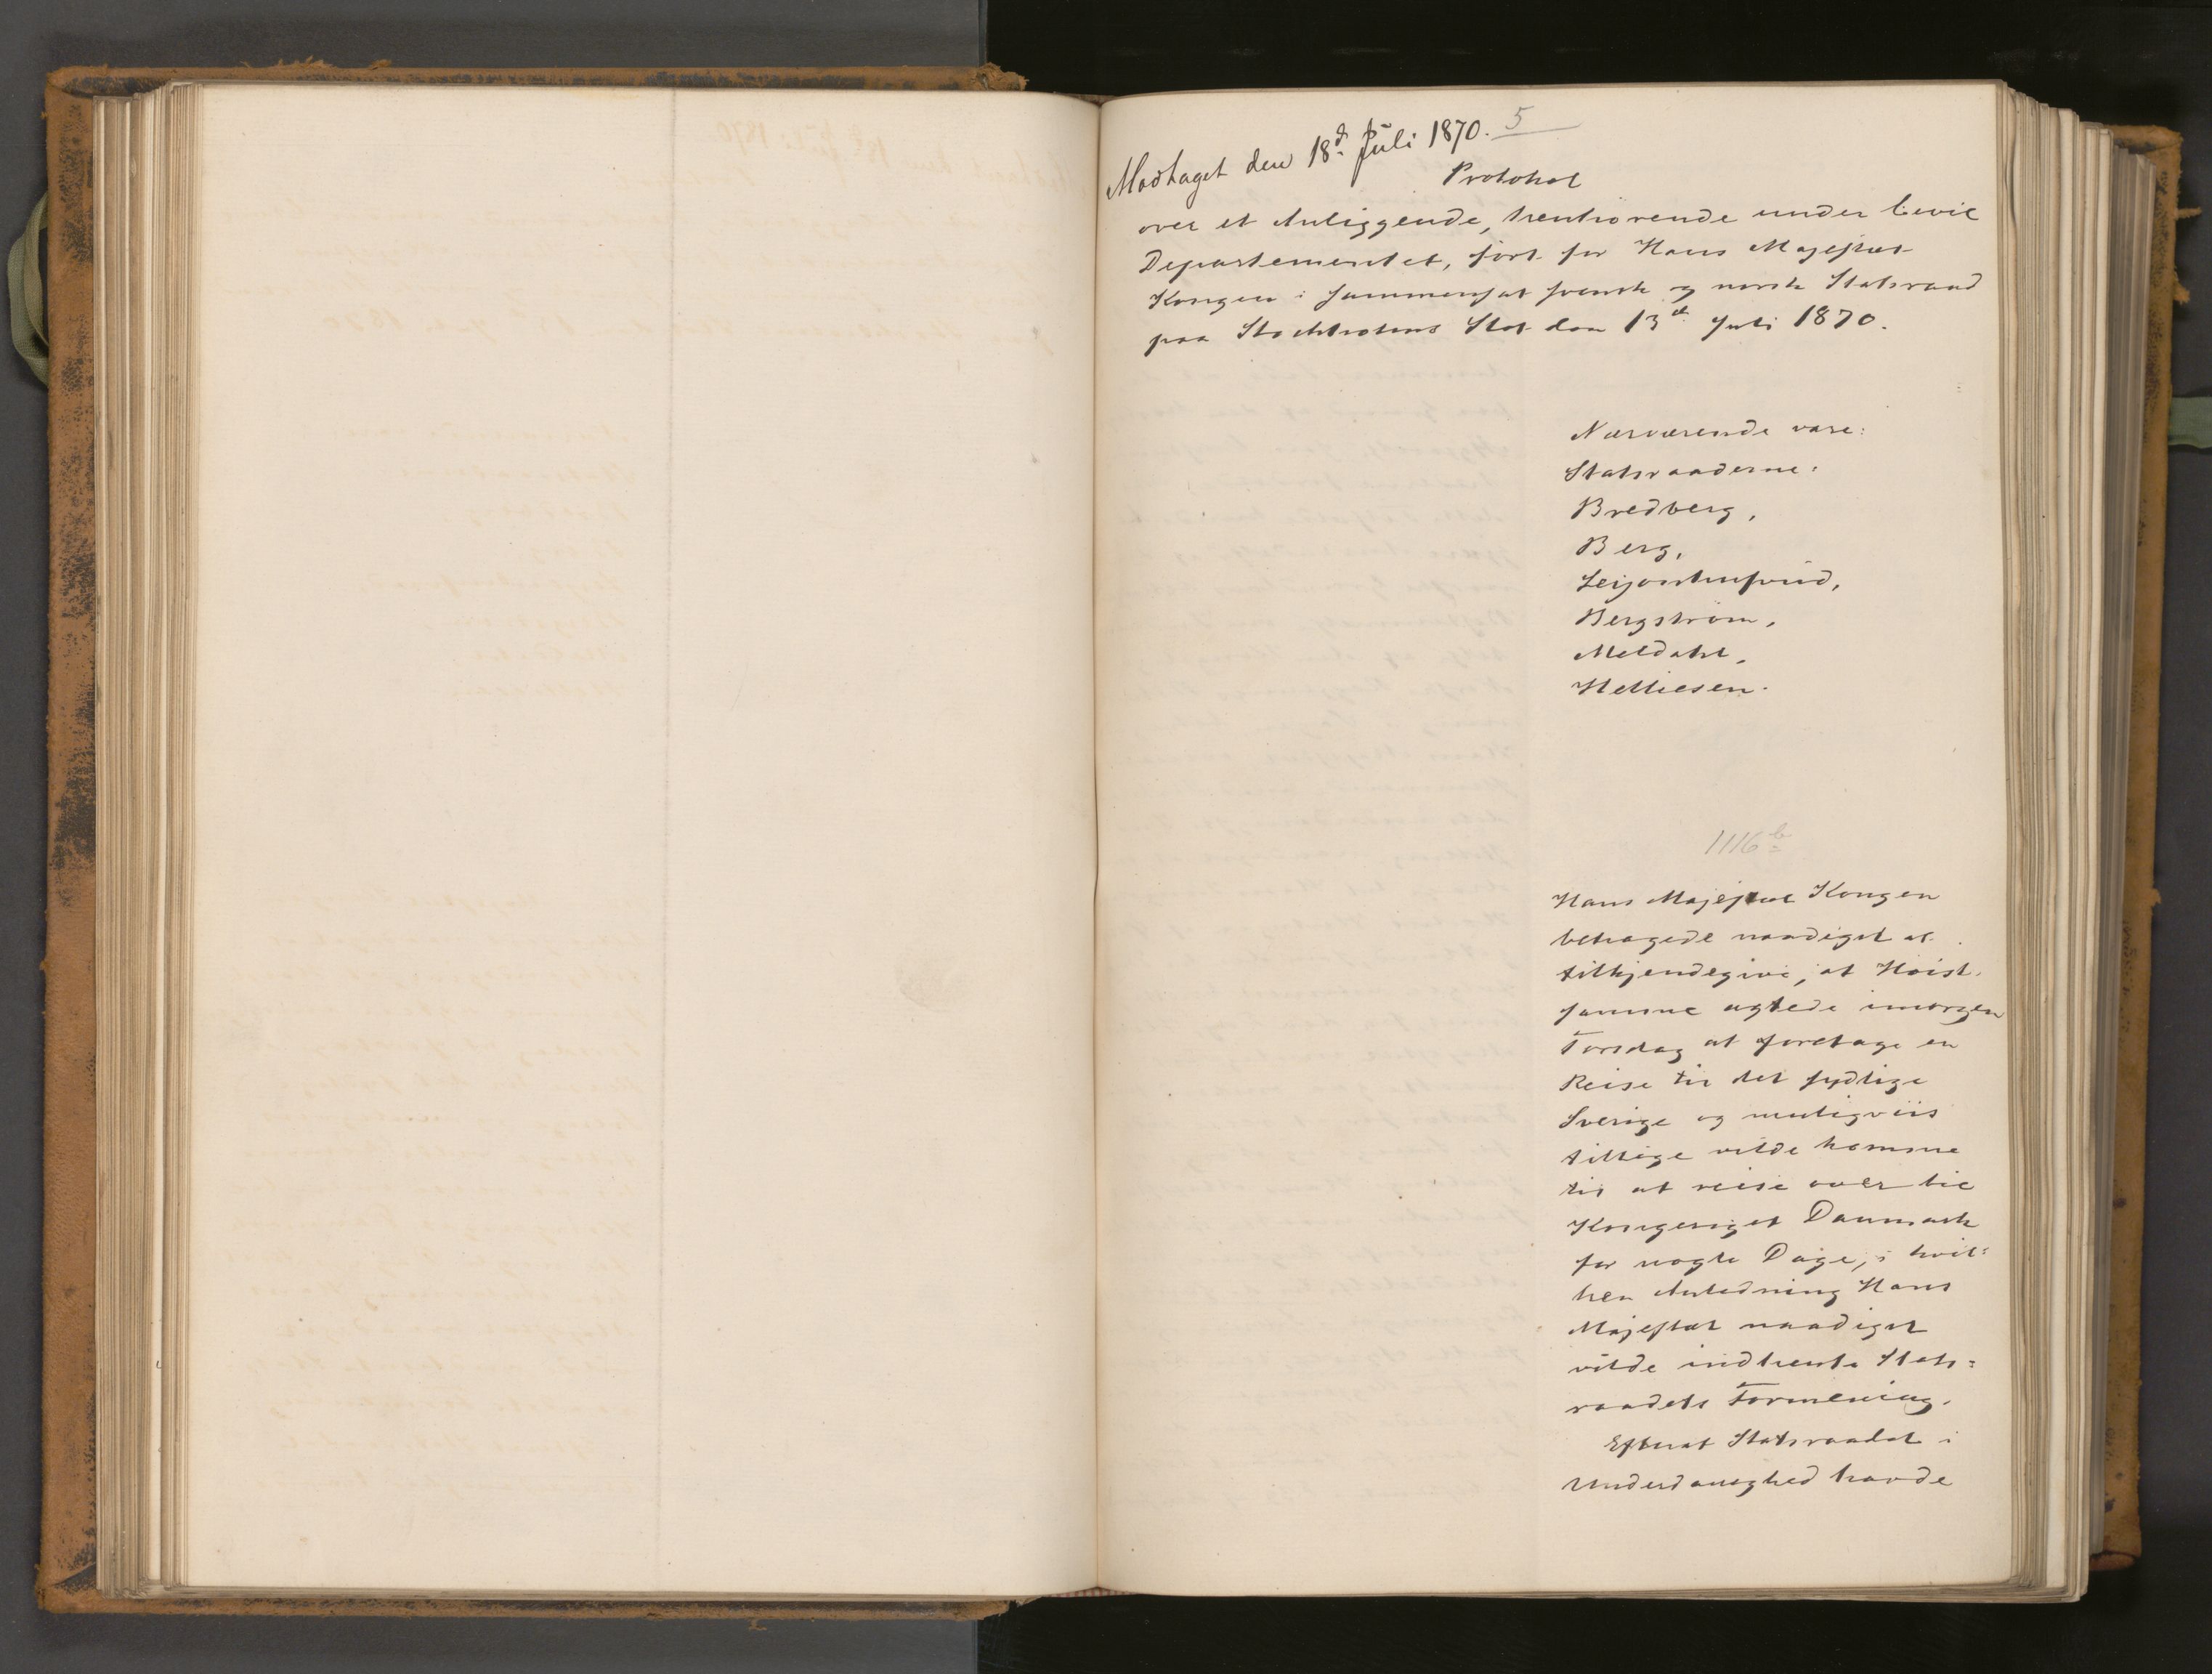 5
Modtaget den 18d Juli 1870.
Protokol
over et Anliggende, henhörende under Civil
Departementet, fört for Hans Majestæt
Kongen i sammensat svensk og norsk Statsraad
paa Stockholms Slot den 13d Juli 1870.
Nærværende vare:
Statsraaderne:
Bredberg,
Berg,
Leijonhufvud,
Bergström,
Meldahl,
Helliesen.
1116b
Hans Majestæt Kongen
behagede naadigst at
tilkjendegive, at Höist-
samme agtede imorgen
Torsdag at foretage en
Reise til det sydlige
Sverige og muligviis
tillige vilde komme
til at reise over til
Kongeriget Danmark
for nogle Dage, i hvil=
ken Anledning Hans
Majestæt naadigst
vilde indhente Stats=
raadets Formening.
Efterat Statsraadet i
Underdanighed havde